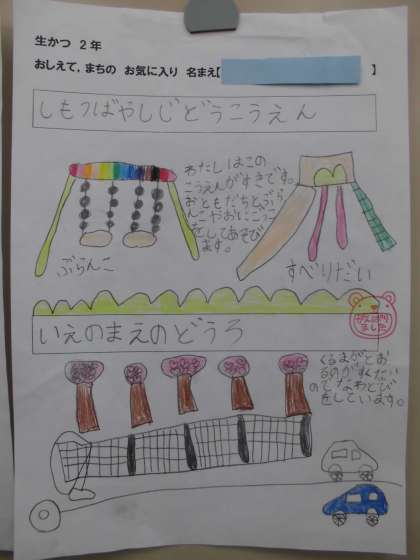 生かつ 2年
おしえて,まちの お気に入り 名まえ【 】
しもつばやしじどうこうえん
わたしはこの
こうえんがすきです。
おともだちとぶら
んこやおにごっこ
をしてあそび
ます。
ぶらんこ
すべりだい
がんばり
ました
いえのまえのどうろ
くるまがとお
るのがすくない
のでなわとび
をしています。